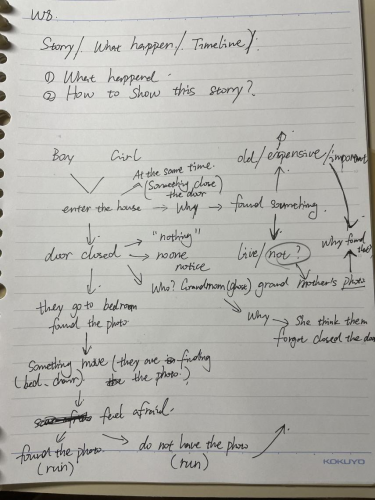 W8.
Storry/. What happen/. Timeline/.
① What happend.
② How to show this storry?.
Boy Girl
old/expensive/important
At the same time.
(Something close the door)
enter the house → Why → found something.
door closed → "nothing"
→ no one notice
live/not?
why found
Who? Grandmom(ghost) grand mother's photo
they go to bedroom
found the photo.
Why → She think them
forgot closed the door
Something move (they are finding
(bed - chair) the photo.)
feel afraid.
found the photo.
(run)
do not have the photo
(run)
KOKUYO